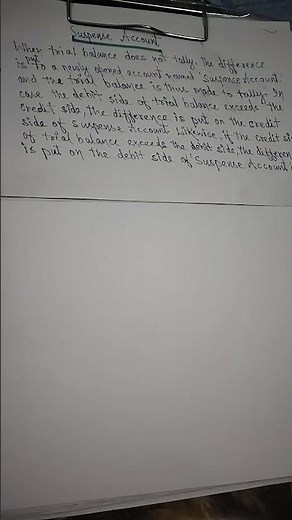 Suspense Account.
When trial balance does not tally. The difference
is put to a newly opened account named 'Suspense Account.
and the trial balance is thus made to tally. In
case the debit side of trial balance exceeds the
credit side, the difference is put on the credit
side of Suspense Account. Likewise if the credit si
of trial balance exceeds the debit side, the differen
is put on the debit side of 'Suspense Account.